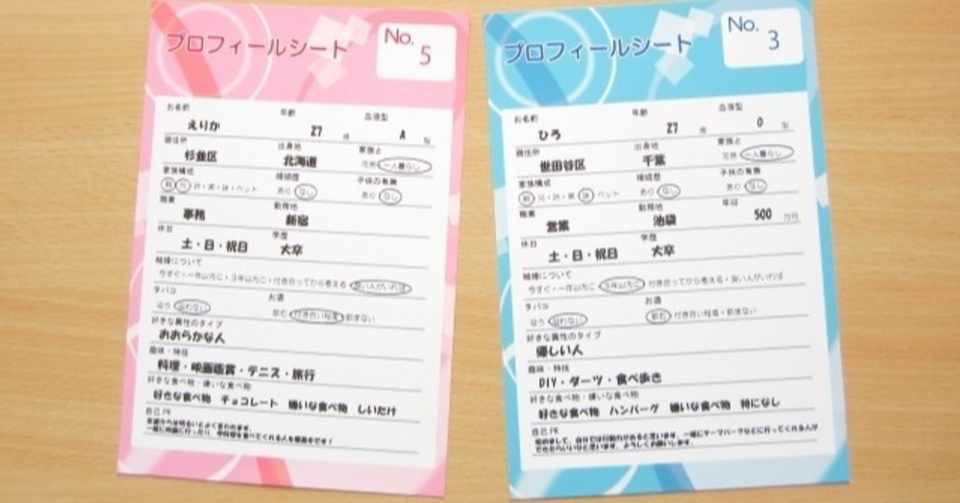 プロフィールシート
No.
5
お名前 年齢 血液型
えりか 27 歳 A 型
居住所 出身地 家族と
杉並区 北海道 同居 一人暮らし
家族構成 婚姻歴 子供の有無
親・兄・弟・姉・妹・ペット あり なし あり なし
職業 勤務地
事務 新宿
休日 学歴
土・日・祝日 大卒
結婚について
今すぐ・一年以内に・3年以内に・付き合ってから考える・良い人がいれば
タバコ お酒
吸う 吸わない 飲む 付き合い程度・飲まない
好きな異性のタイプ
おおらかな人
趣味・特技
料理・映画鑑賞・テニス・旅行
好きな食べ物・嫌いな食べ物
好きな食べ物 チョコレート 嫌いな食べ物 しいたけ
自己PR
プロフィールシート
No.
3
お名前 年齢 血液型
ひろ 27 歳 O 型
居住所 出身地 家族と
世田谷区 千葉 同居 一人暮らし
家族構成 婚姻歴 子供の有無
親・兄・弟・姉・妹・ペット あり なし あり なし
職業 勤務地 年収
営業 池袋 500 万円
休日 学歴
土・日・祝日 大卒
結婚について
今すぐ・一年以内に・3年以内に・付き合ってから考える・良い人がいれば
タバコ お酒
吸う 吸わない 飲む 付き合い程度・飲まない
好きな異性のタイプ
優しい人
趣味・特技
DIY・ダーツ・食べ歩き
好きな食べ物・嫌いな食べ物
好きな食べ物 ハンバーグ 嫌いな食べ物 特になし
自己PR
初めまして、自分では行動力があると思います。一緒にテーマパークなどに行ってくれる人が
できたらいいなと思います。よろしくお願いします。